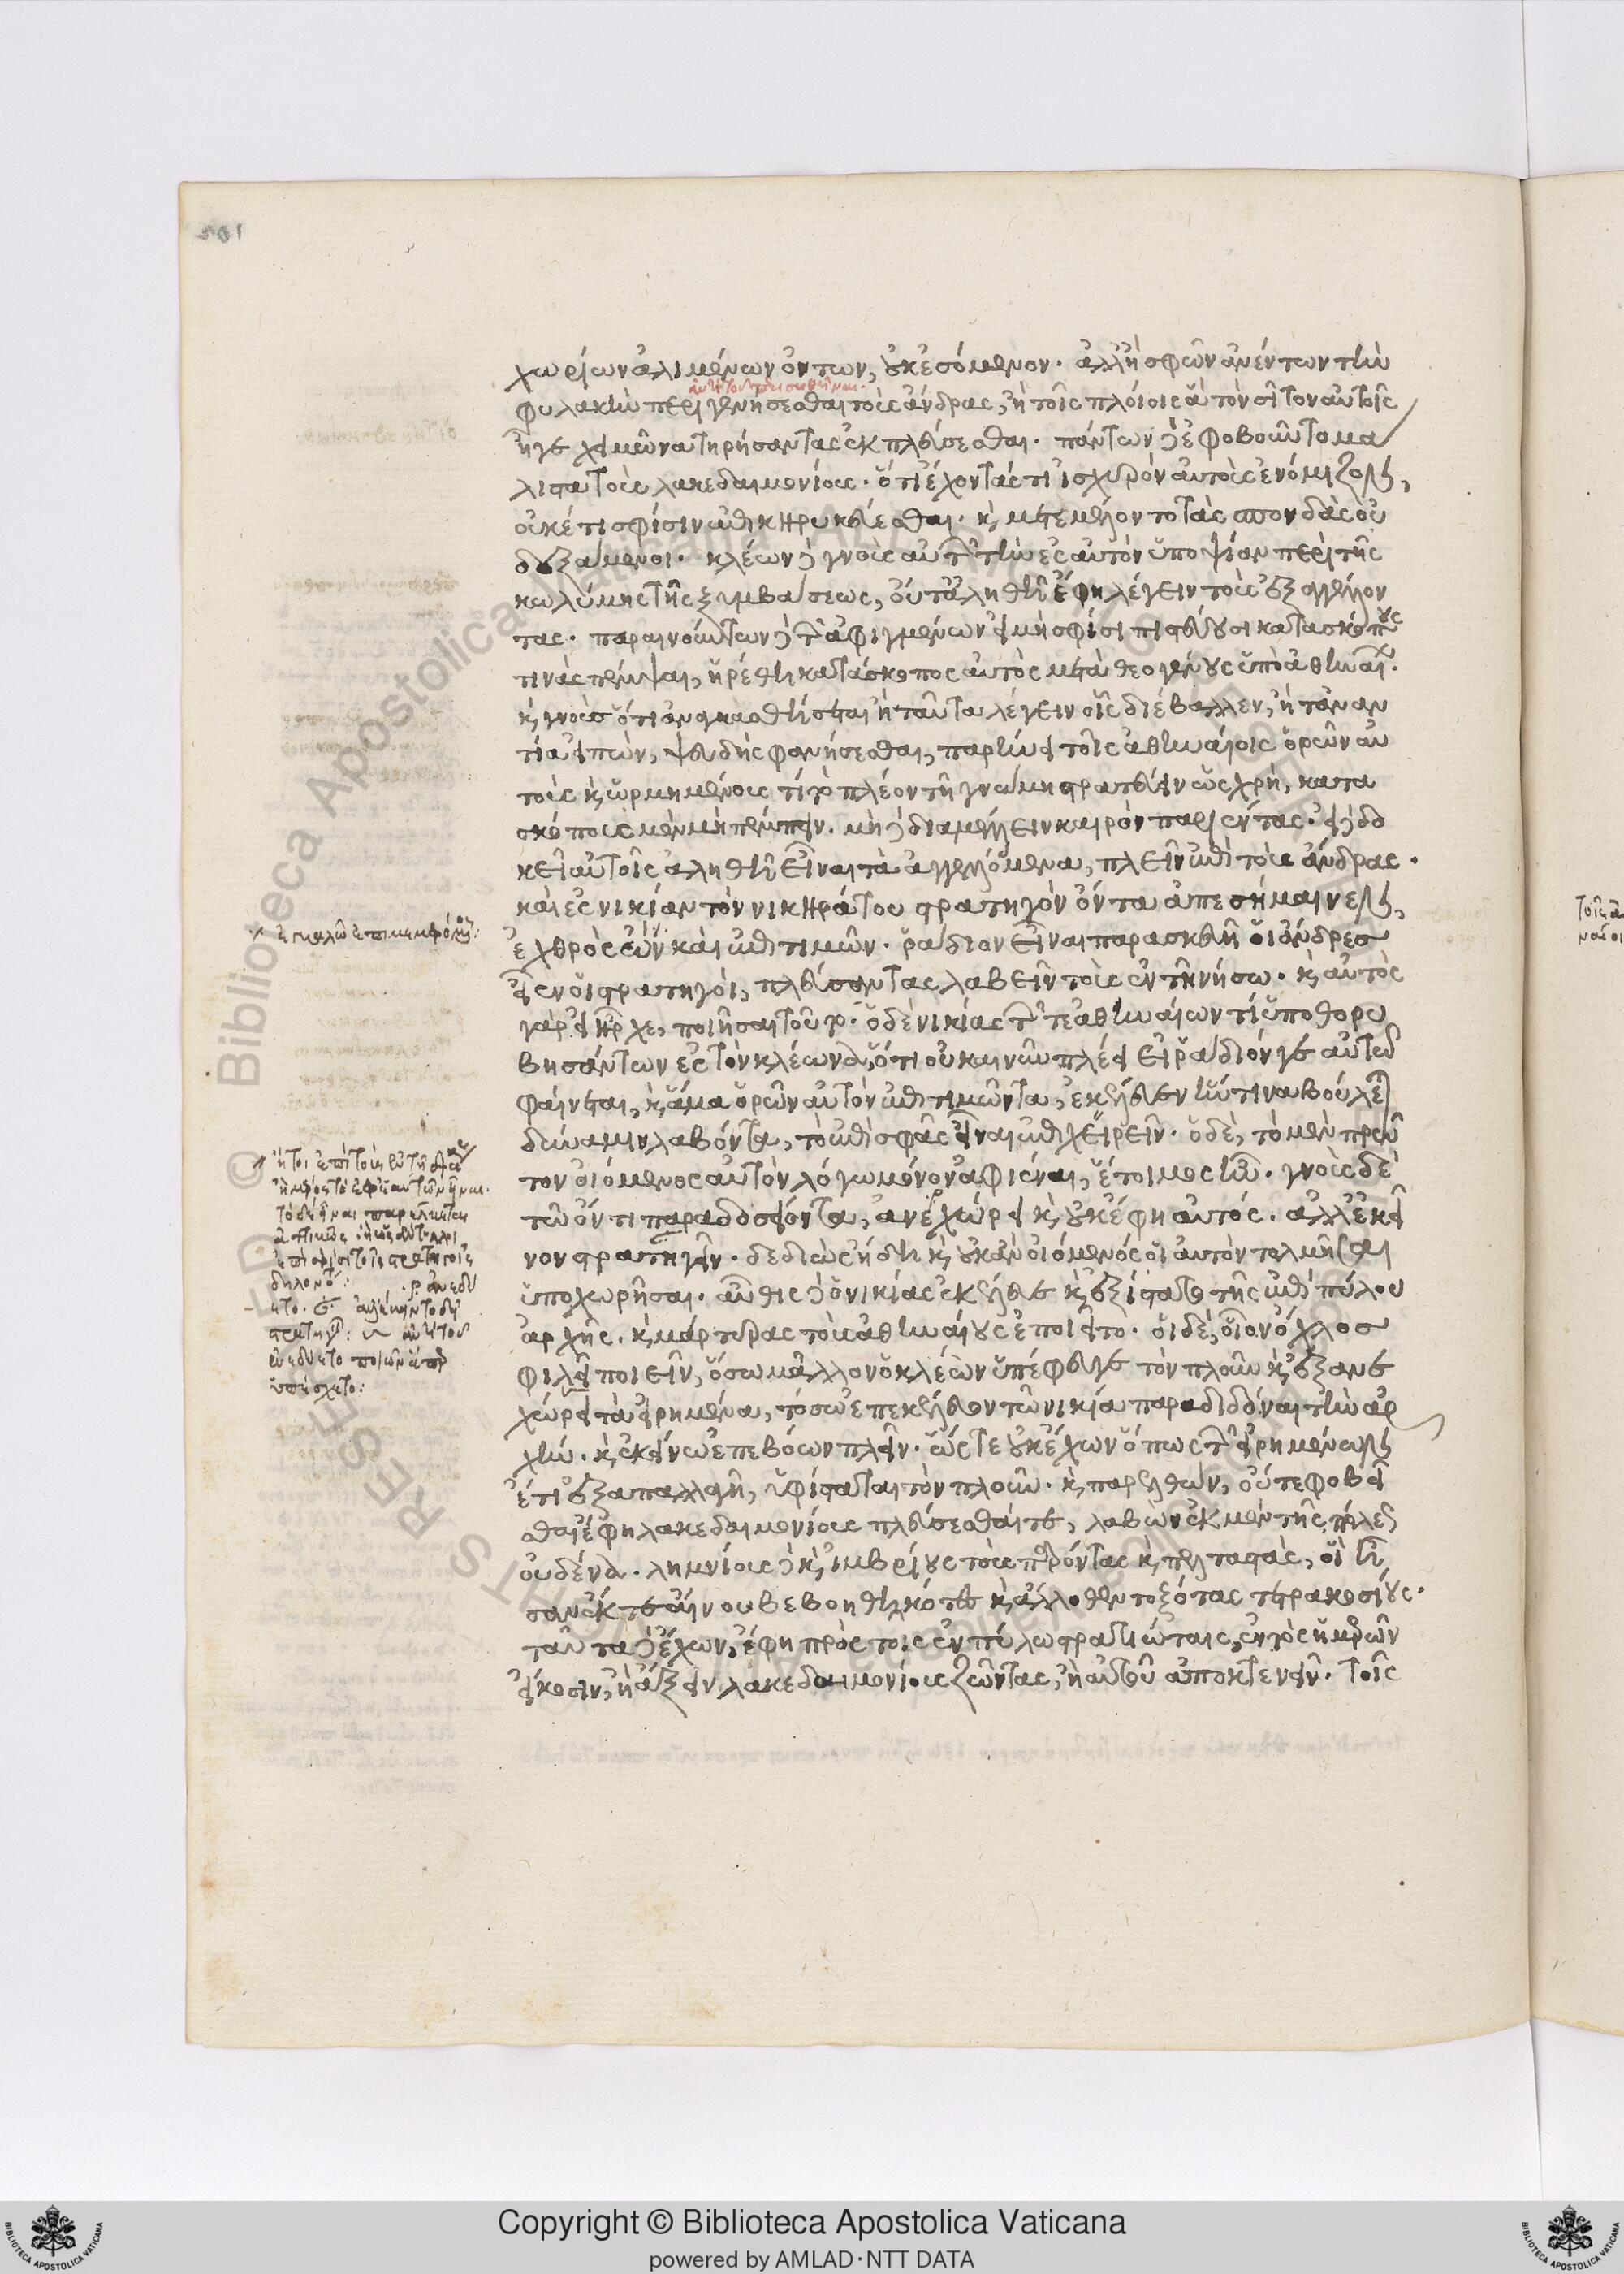 χωρίων ἀλιμένων ὄντων, οὐκ ἐσόμενον· ἀλλ' ἢ σφῶν ἀνέντων τὴν
φυλακὴν περιγενήσεσθαι τοὺς ἄνδρας, ἢ τοῖς πλοίοις ἃ τὸν σῖτον αὐτοῖς
ἦγε χειμῶνα τηρήσαντας ἐκπλεύσεσθαι· πάντων δὲ ἐφοβοῦντο μά
λιστα τοὺς λακεδαιμονίους· ὅτι ἔχοντάς τι ἰσχυρὸν αὐτοὺς ἐνόμιζον,
οὐκέτι σφίσιν ἐπικηρυκεύεσθαι· κ μετεμέλοντο τὰς σπονδὰς οὐ
δεξάμενοι· κλέων δὲ γνοὺς αὐτῶν τὴν ἐς αὐτὸν ὑποψίαν περὶ τῆς
κωλύμης τῆς ξυμβάσεως, οὐ τἀληθῆ ἔφη λέγειν τοὺς ἐξαγγέλλον
τας· παραινούντων δὲ τῶν ἀφιγμένων εἰ μὴ σφίσι πιστεύουσι κατασκόπους
τινὰς πέμψαι, ᾑρέθη κατάσκοπος αὐτὸς μετὰ θεογένους ὑπὸ ἀθηναίων·
κ γνοὺς ὅτι ἀναγκασθήσεται ἢ ταῦτα λέγειν οἷς διέβαλλεν, ἢ τἀναν
τία εἰπὼν, ψευδὴς φανήσεσθαι, παρῄνει τοῖς ἀθηναίοις ὁρῶν αὐ
τοὺς κ ὡρμημένους τί τὸ πλέον τῇ γνώμῃ στρατεύειν ὡς χρὴ, κατα
σκόπους μὲν μὴ πέμπειν· μὴ δὲ διαμέλλειν καιρὸν παριέντας· εἰ δὲ δο
κεῖ αὐτοῖς ἀληθῆ εἶναι τὰ ἀγγελλόμενα, πλεῖν ἐπὶ τοὺς ἄνδρας·
καὶ ἐς νικίαν τὸν νικηράτου στρατηγὸν ὄντα ἀπεσήμαινεν,
ἐχθρὸς ὢν καὶ ἐπιτιμῶν· ῥάδιον εἶναι παρασκευῇ εἰ ἄνδρες
εἶεν οἱ στρατηγοὶ, πλεύσαντας λαβεῖν τοὺς ἐν τῇ νήσῳ· κ αὐτὸς
γὰρ εἰ ἦρχε, ποιῆσαι τοῦτο· ὁ δὲ νικίας τῶν τε ἀθηναίων τί ὑποθορυ
βησάντων ἐς τὸν κλέωνα, ὅτι οὐ καὶ νῦν πλεῖ εἰ ῥάδιόν γε αὐτῷ
φαίνεται, κ ἅμα ὁρῶν αὐτὸν ἐπιτιμῶντα, ἐκέλευεν ἥντινα βούλεται
δύναμιν λαβόντα, τὸ ἐπὶ σφᾶς εἶναι ἐπιχειρεῖν· ὁ δὲ, τὸ μὲν πρῶ
τον οἰόμενος αὐτὸν λόγῳ μόνον ἀφιέναι, ἕτοιμος ἦν· γνοὺς δὲ
τῷ ὄντι παραδοσείοντα, ἀνεχώρει κ οὐκ ἔφη αὐτός· ἀλλ' ἐκεῖ
νον στρατηγεῖν· δεδιὼς ἤδη κ οὐκ ἂν οἰόμενός οἱ αὐτὸν τολμῆσαι
ὑποχωρῆσαι· αὖθις δὲ ὁ νικίας ἐκέλευε κ ἐξίστατο τῆς ἐπὶ πύλου
ἀρχῆς· κ μάρτυρας τοὺς ἀθηναίους ἐποιεῖτο· οἱ δὲ, οἷον ὄχλος
φιλεῖ ποιεῖν, ὅσῳ μᾶλλον ὁ κλέων ὑπέφευγε τὸν πλοῦν κ ἐξανε
χώρει τὰ εἰρημένα, τόσῳ ἐπεκελεύοντο τῷ νικίᾳ παραδιδόναι τὴν ἀρ
χήν· κ ἐκείνῳ ἐπεβόων πλεῖν· ὥστε οὐκ ἔχων ὅπως τῶν εἰρημένων
ἔτι ἐξαπαλλαγῇ, ὑφίσταται τὸν πλοῦν· κ παρελθὼν, οὔτε φοβεῖ
σθαι ἔφη λακεδαιμονίους πλεύσεσθαί τε, λαβὼν ἐκ μὲν τῆς πόλεως
οὐδένα· λημνίους δὲ κ ἰμβρίους τοὺς παρόντας κ πελταστὰς, οἳ ἦ
σαν ἔκ τε αἴνου βεβοηθηκότες κ ἄλλοθεν τοξότας τετρακοσίους·
ταῦτα δὲ ἔχων, ἔφη πρὸς τοῖς ἐν πύλῳ στρατιώταις, ἐντὸς ἡμερῶν
εἴκοσιν, ἢ ἄξειν λακεδαιμονίους ζῶντας, ἢ αὐτοῦ ἀποκτενεῖν· τοῖς